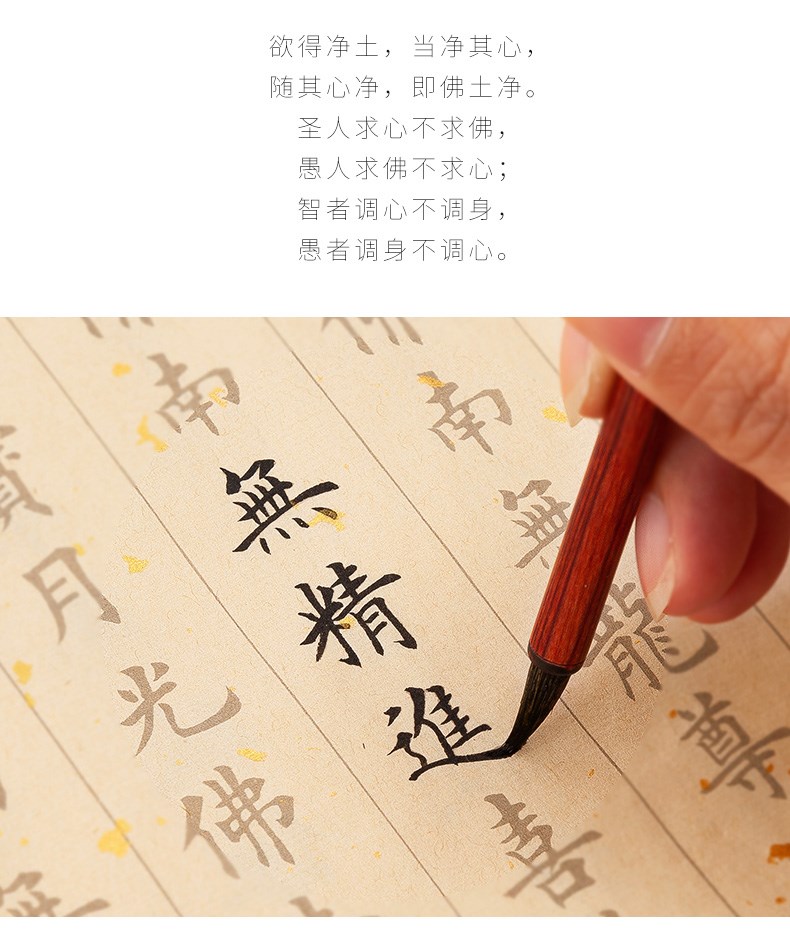 欲得净土，当净其心，
随其心净，即佛土净。
圣人求心不求佛，
愚人求佛不求心；
智者调心不调身，
愚者调身不调心。
南無龍尊
南無精進喜
寶月光佛
無